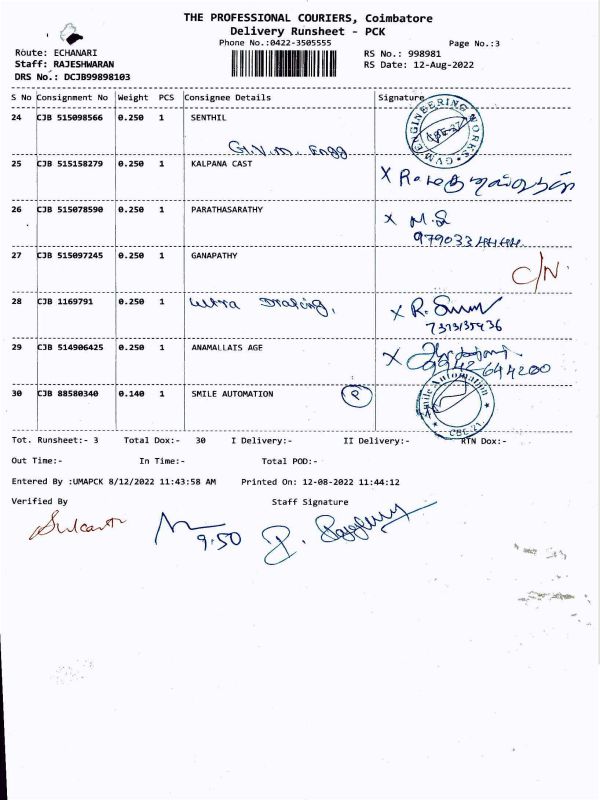 THE PROFESSIONAL COURIERS, Coimbatore
Delivery Runsheet - PCK
Phone No.:0422-3505555
Page No.:3
Route: ECHANARI
RS No.: 998981
Staff: RAJESHWARAN
RS Date: 12-Aug-2022
DRS No.: DCJB99898103
S No Consignment No Weight PCS Consignee Details Signature
24 CJB 515098566 0.250 1 SENTHIL
G.V.M. Engg
GVM ENGINEERING WORKS
25 CJB 515158279 0.250 1 KALPANA CAST
X R.
26 CJB 515078590 0.250 1 PARATHASARATHY
X M.S
979033
27 CJB 515097245 0.250 1 GANAPATHY
C/N.
28 CJB 1169791 0.250 1 Ultra
X R.
29 CJB 514906425 0.250 1 ANAMALLAIS AGE
X
9942644200
30 CJB 88580340 0.140 1 SMILE AUTOMATION P
Smile Automation
CBE-21.
Tot. Runsheet:- 3 Total Dox:- 30 I Delivery:- II Delivery:- RTN Dox:-
Out Time:- In Time:- Total POD:-
Entered By :UMAPCK 8/12/2022 11:43:58 AM Printed On: 12-08-2022 11:44:12
Verified By Staff Signature
9.50